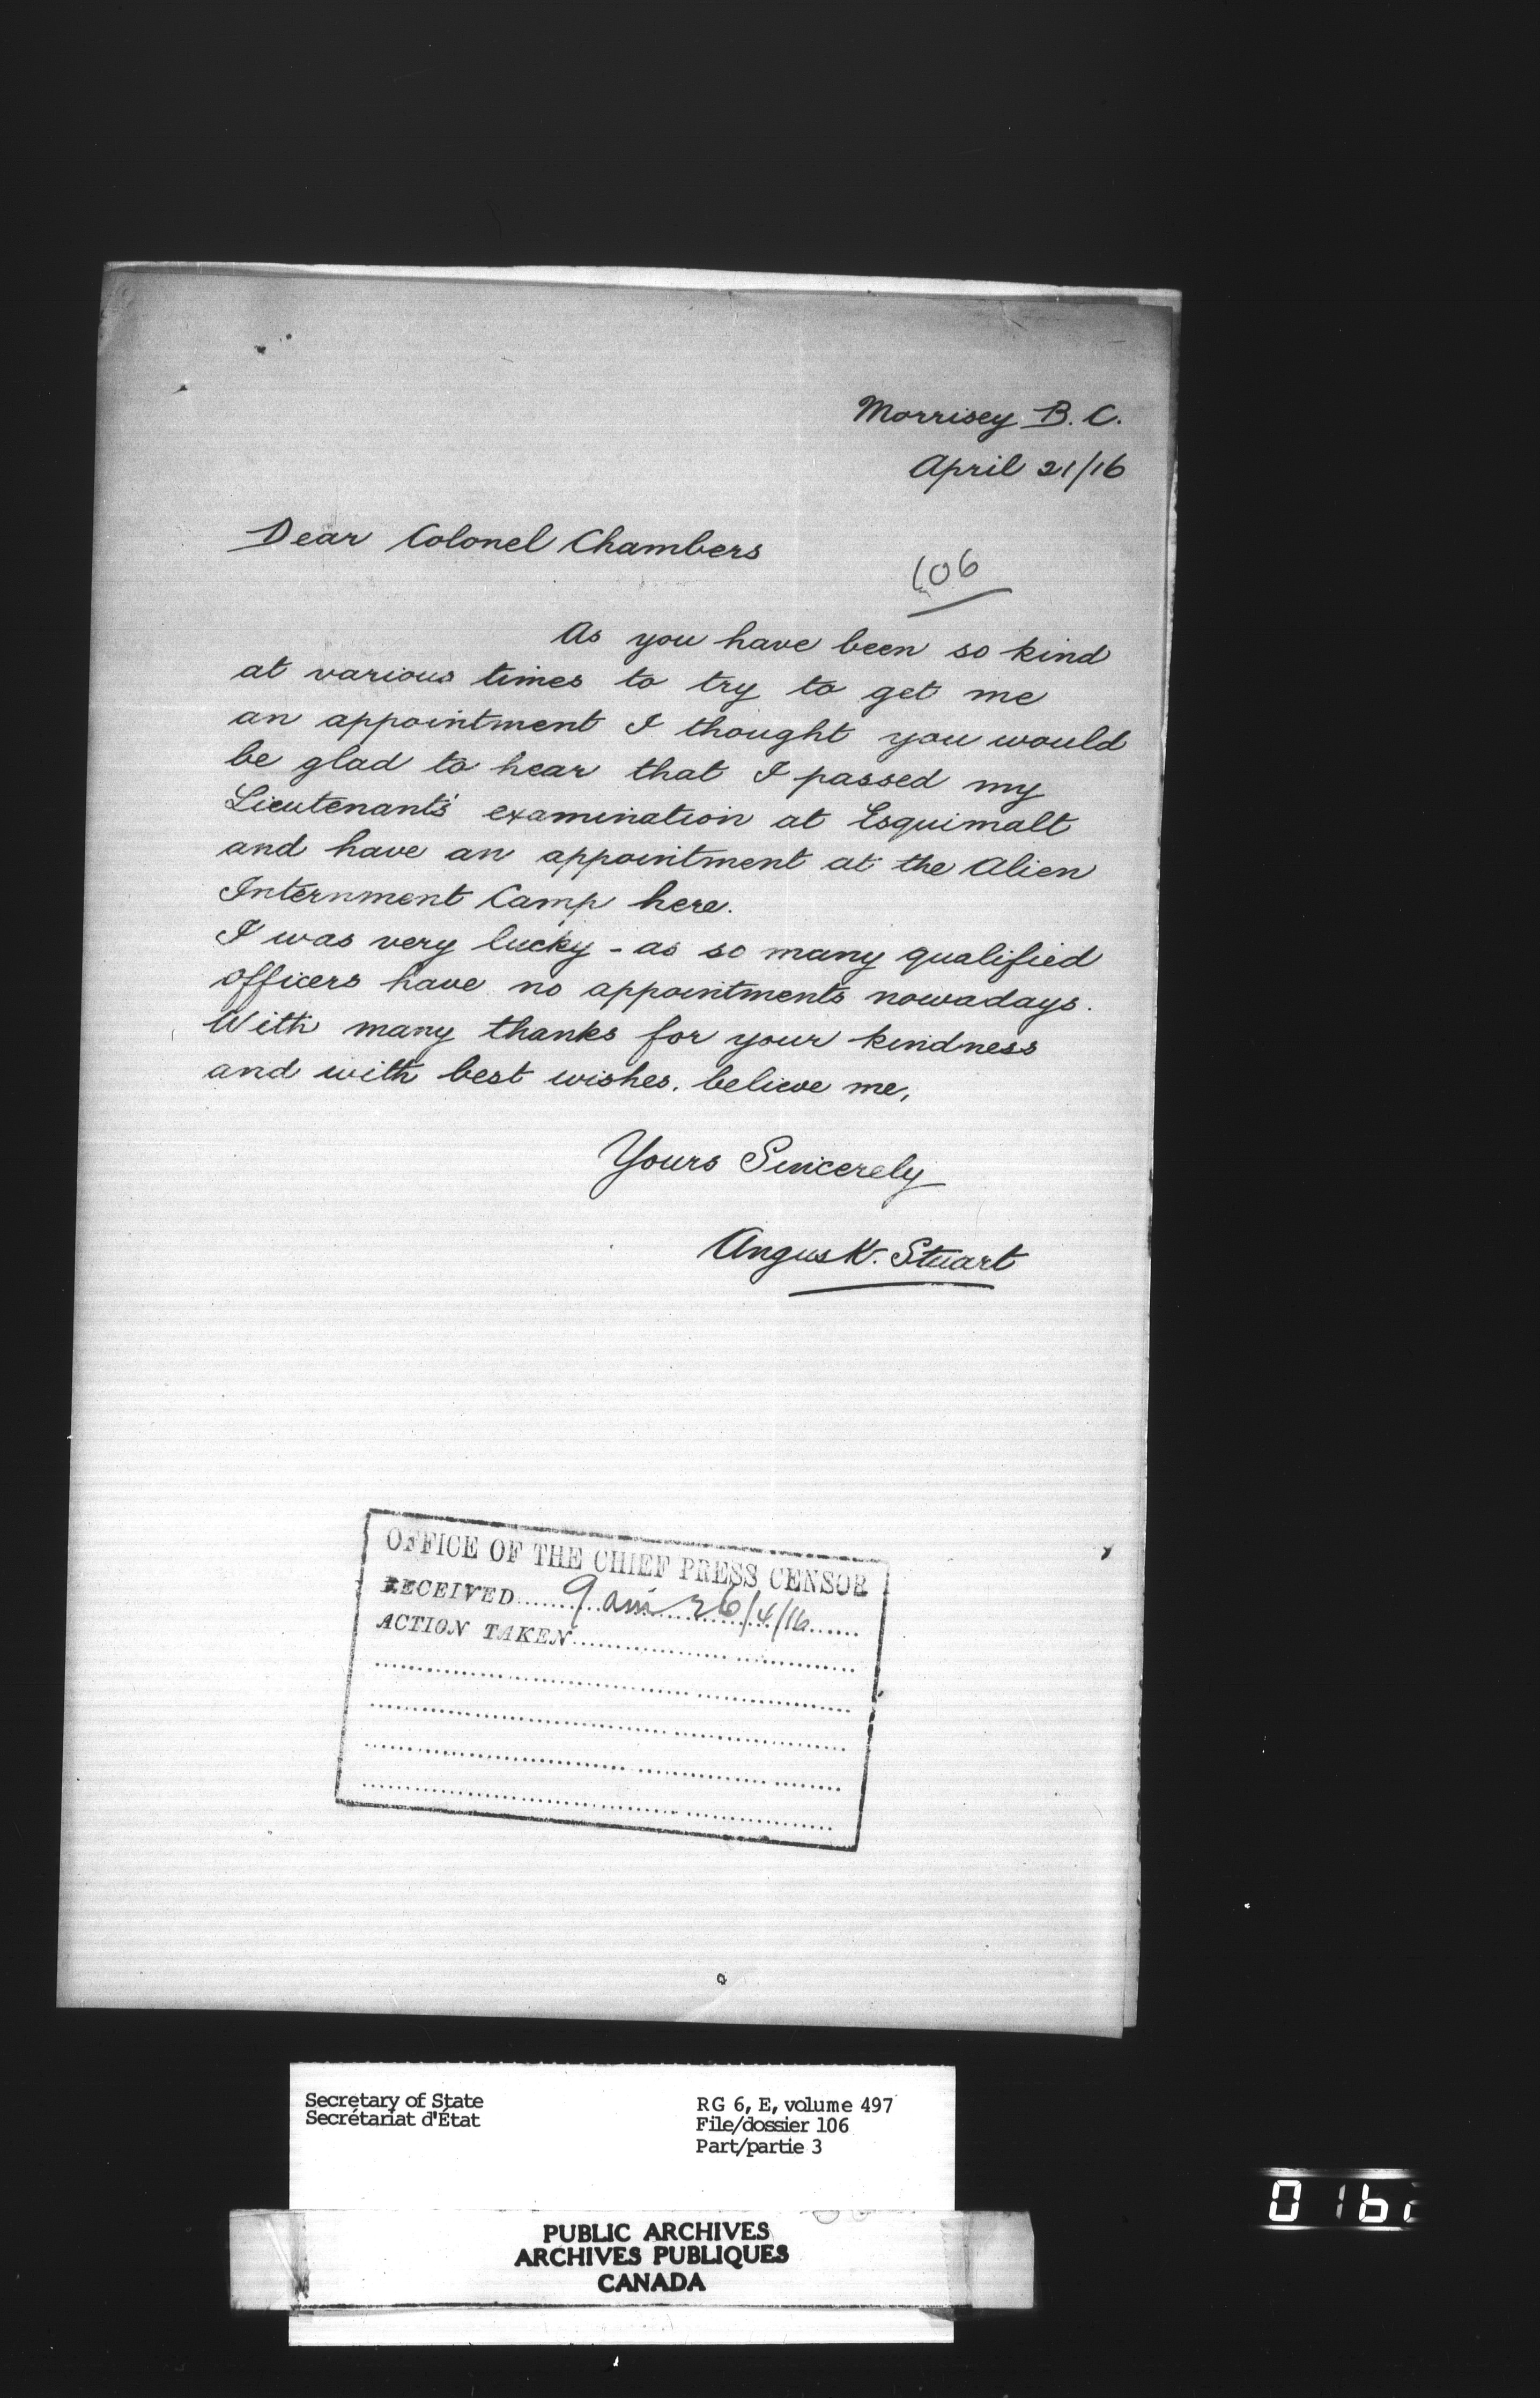 Morrisey B.C.
April 21/16
Dear Colonel Chambers
106
As you have been so kind
at various times to try to get me
an appointment I thought you would
be glad to hear that I passed my
Lieutenant's examination at Esquimalt
and have an appointment at the Alien
Internment Camp here.
I was very lucky - as so many qualified
officers have no appointments nowadays.
With many thanks for your kindness
and with best wishes. believe me,
Yours Sincerely
Angus K. Stuart
OFFICE OF THE CHIEF PRESS CENSOR
RECEIVED 9 am 26/4/16
ACTION TAKEN
Secretary of State
Secrétariat d'État
RG 6, E, volume 497
File/dossier 106
Part/partie 3
PUBLIC ARCHIVES
ARCHIVES PUBLIQUES
CANADA